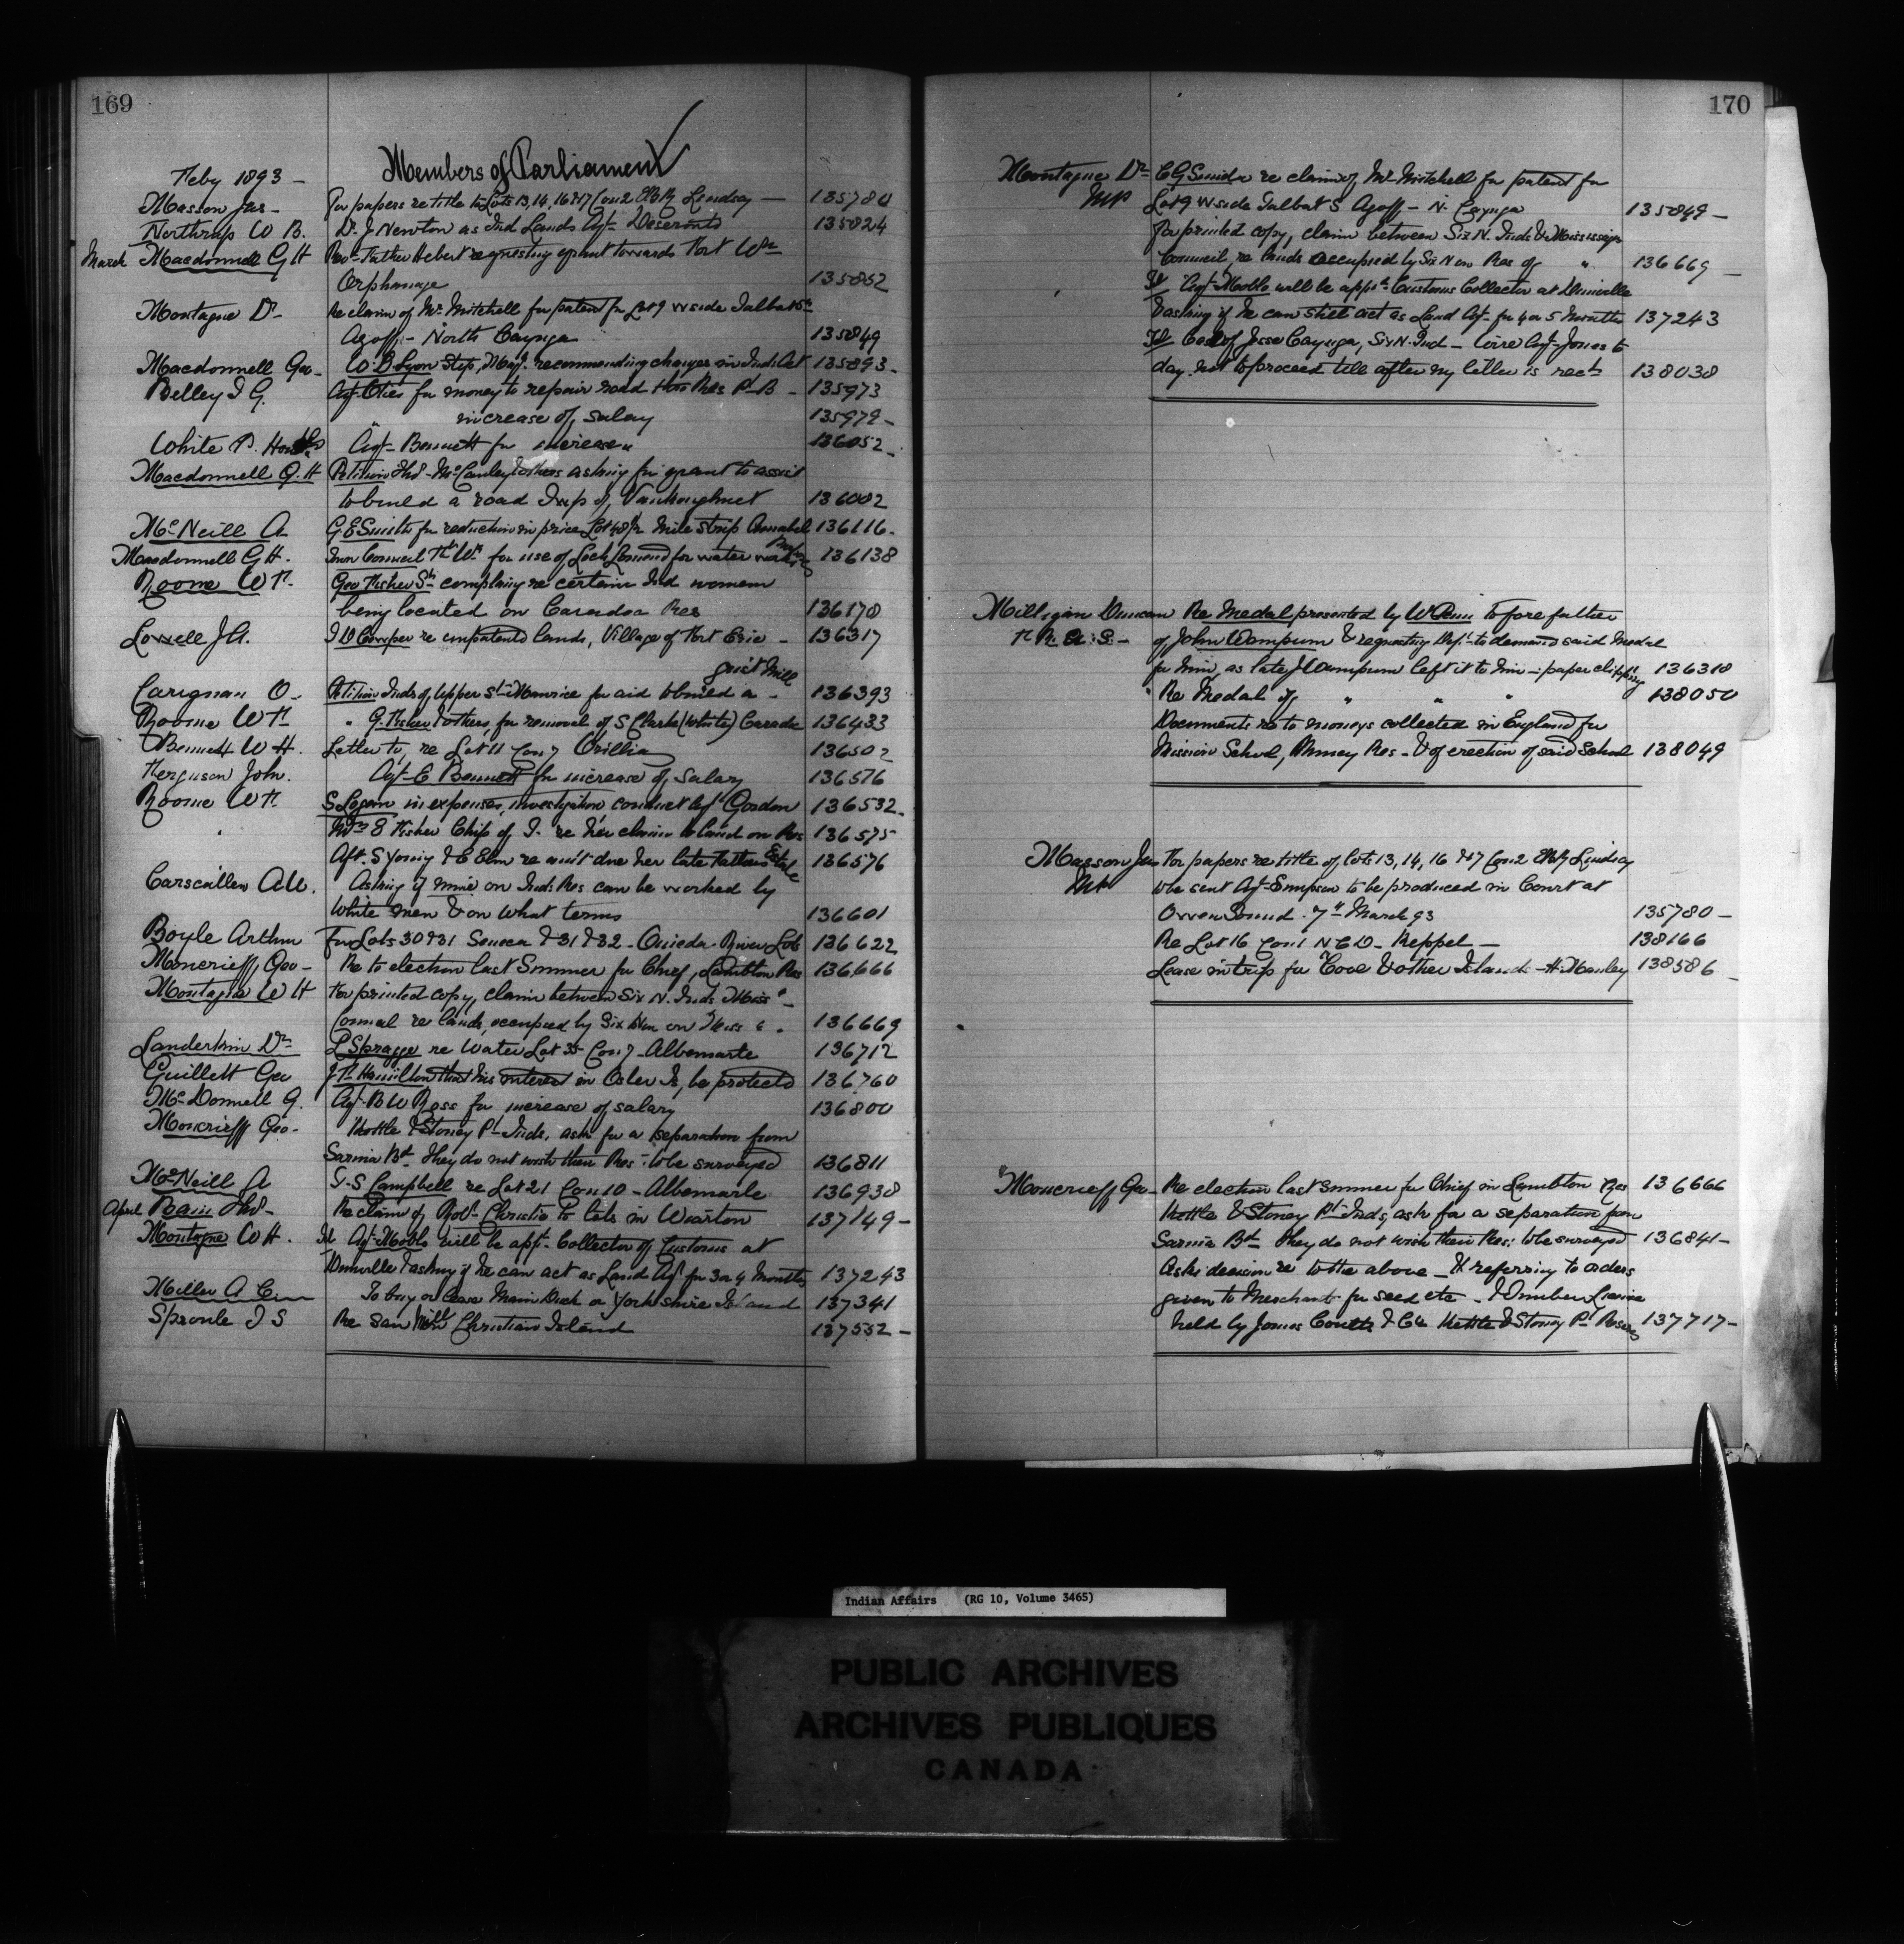 169
Members of Parliament
Feby 1893 -
Masson Jas - For papers re title to Lots 13, 14, 16 & 17 Con 2 Lindsay - 135780
Northrup W B. Dr. J Newton as Ind Lands Agt Deseronto 135824
March Macdonnell G H Revd Father Hebert requesting grant towards Fort Wm
Orphanage 135852
Montague Dr - Re claim of Mr Mitchell for patent for Lot 9 W side Talbot St
Agoff - North Cayuga 135849
Macdonnell Geo - W. B Lyon Stip. Mag. recommending changes in Ind. Act 135893 -
Belley L G. Agt Otis for money to repair road thro Res Pt B - 135973
" increase of salary 135979 -
White P. Agt - Bennett for increase " 136052 -
Macdonnell G. H Petition Thos McCauley & others asking for grant to assist
to build a road Twp of Vankoughnet 136002
McNeill A G E Smith for reduction in price Lot 48 1/2 mile strip Amabel 136116 -
Macdonnell G H. Town Council Ft Wm for use of Loch Lomond for water works 136138
Roome W F. Geo Fisher Sr complaing re certain Ind women
being located on Caradoc Res 136178
Lowell J A. I D Cowper re unpatented lands, Village of Fort Erie - 136317
grist mill
Carignan O - Petition Inds of Upper St Maurice for aid to build a - 136393
Roome W F " G. Fisher & others, for removal of S Clark (White) Carade 136433
Bennett W H. Letter to, re Lot 11 Con 7 Orillia 136502
Ferguson John. Agt - E Bennett for increase of salary 136576
Roome W F. S Logan in expenses, investigation conduct Agt Gordon 136532 -
" Mrs E Fisher Chip of T. re her claim to land on Res 136575
Aft. S Young & E Elm re am't due her late Fathers Estate 136576
Carscallen A W. Asking if mine on Inds Res can be worked by
White men & on what terms 136601
Boyle Arthur For Lots 30 & 31 Seneca & 31 & 32 - Oneida - River Lots 136622
Moncrieff, Geo - Re to election last Summer for Chief, Lambton Res 136666
Montague W H For printed copy, claim between Six N. Inds Miss a -
Council re lands, occupied by Six N on Miss " . 136669
Landerkin Dr L Spragge re Water Lot 35 Con 7 - Albemarle 136712
Guillett Geo J T Hamilton that his interest in Osler Is, be protected 136760
McDonnell G. Agt - B W Ross for increase of salary 136800
Moncrieff Geo - Kettle & Stoney Pt Inds. ask for a separation from
Sarnia Bd. They do not wish their Res - to be surveyed 136811
McNeill A T. S Campbell re Lot 21 Con 10 - Albemarle 136938
April Bain Thos - Re claim of Robt Christie to lots in Wiarton 137149 -
Montague W H. If Agt - Noble will be appt - Collector of Customs at
Dunville & asking if he can act as Land Agt for 3 or 4 Months, 137243
Miller A C To buy or lease Main Duck or Yorkshire Island 137341
Sproule T S Re Saw Mill Christian Island 137552 -
170
Montague Dr - C G Snider re claim of Mr Mitchell for patent for
MP Lot 9 W side Talbot S Agoff - N. Cayuga 135849 -
For printed copy, claim between Six N. Inds & Mississaga
Council re lands occupied by Six N on Res of " 136669 -
If Agt - Noble will be appt Customs Collector at Dunville
& asking if he can still act as Land Agt for 4 or 5 Months 137243
Case of Jesse Cayuga, Six N. Ind - Wire Agt Jones to
day not to proceed till after my letter is recd 138038
Milligan Duncan Re Medal presented by W Penn to fore father
of John Wampum & requesting Dept to demand said medal
for him, as late J Wampum left it to him - paper clipping 136318
" Re Medal of " " " 138050
Documents re to moneys collected in England for
Mission School, Muncey Res - & of erection of said School 138049
Masson Jas For papers re title of Lots 13, 14, 16 & 17 Con 2 Lindsay
MP to be sent Agt - Simpson to be produced in Court at
Owen Sound. 7th March 93 135780 -
Re Lot 16 Con 1 N C D - Keppel - 138166
Lease in trip for Cove & other Islands - H. Manley 138586 -
Moncrieff Geo - Re election last Summer for Chief in Lambton Res 136666
Kettle & Stoney Pt Inds, ask for a separation from
Sarnia Bd They do not wish their Res: to be surveyed 136841 -
Asks decision re to the above - & referring to orders
given to Merchants for seed etc - & Timber License
held by James Coutts & Co Kettle & Stoney Pt Reserves 137717 -
Indian Affairs (RG 10, Volume 3465)
PUBLIC ARCHIVES
ARCHIVES PUBLIQUES
CANADA